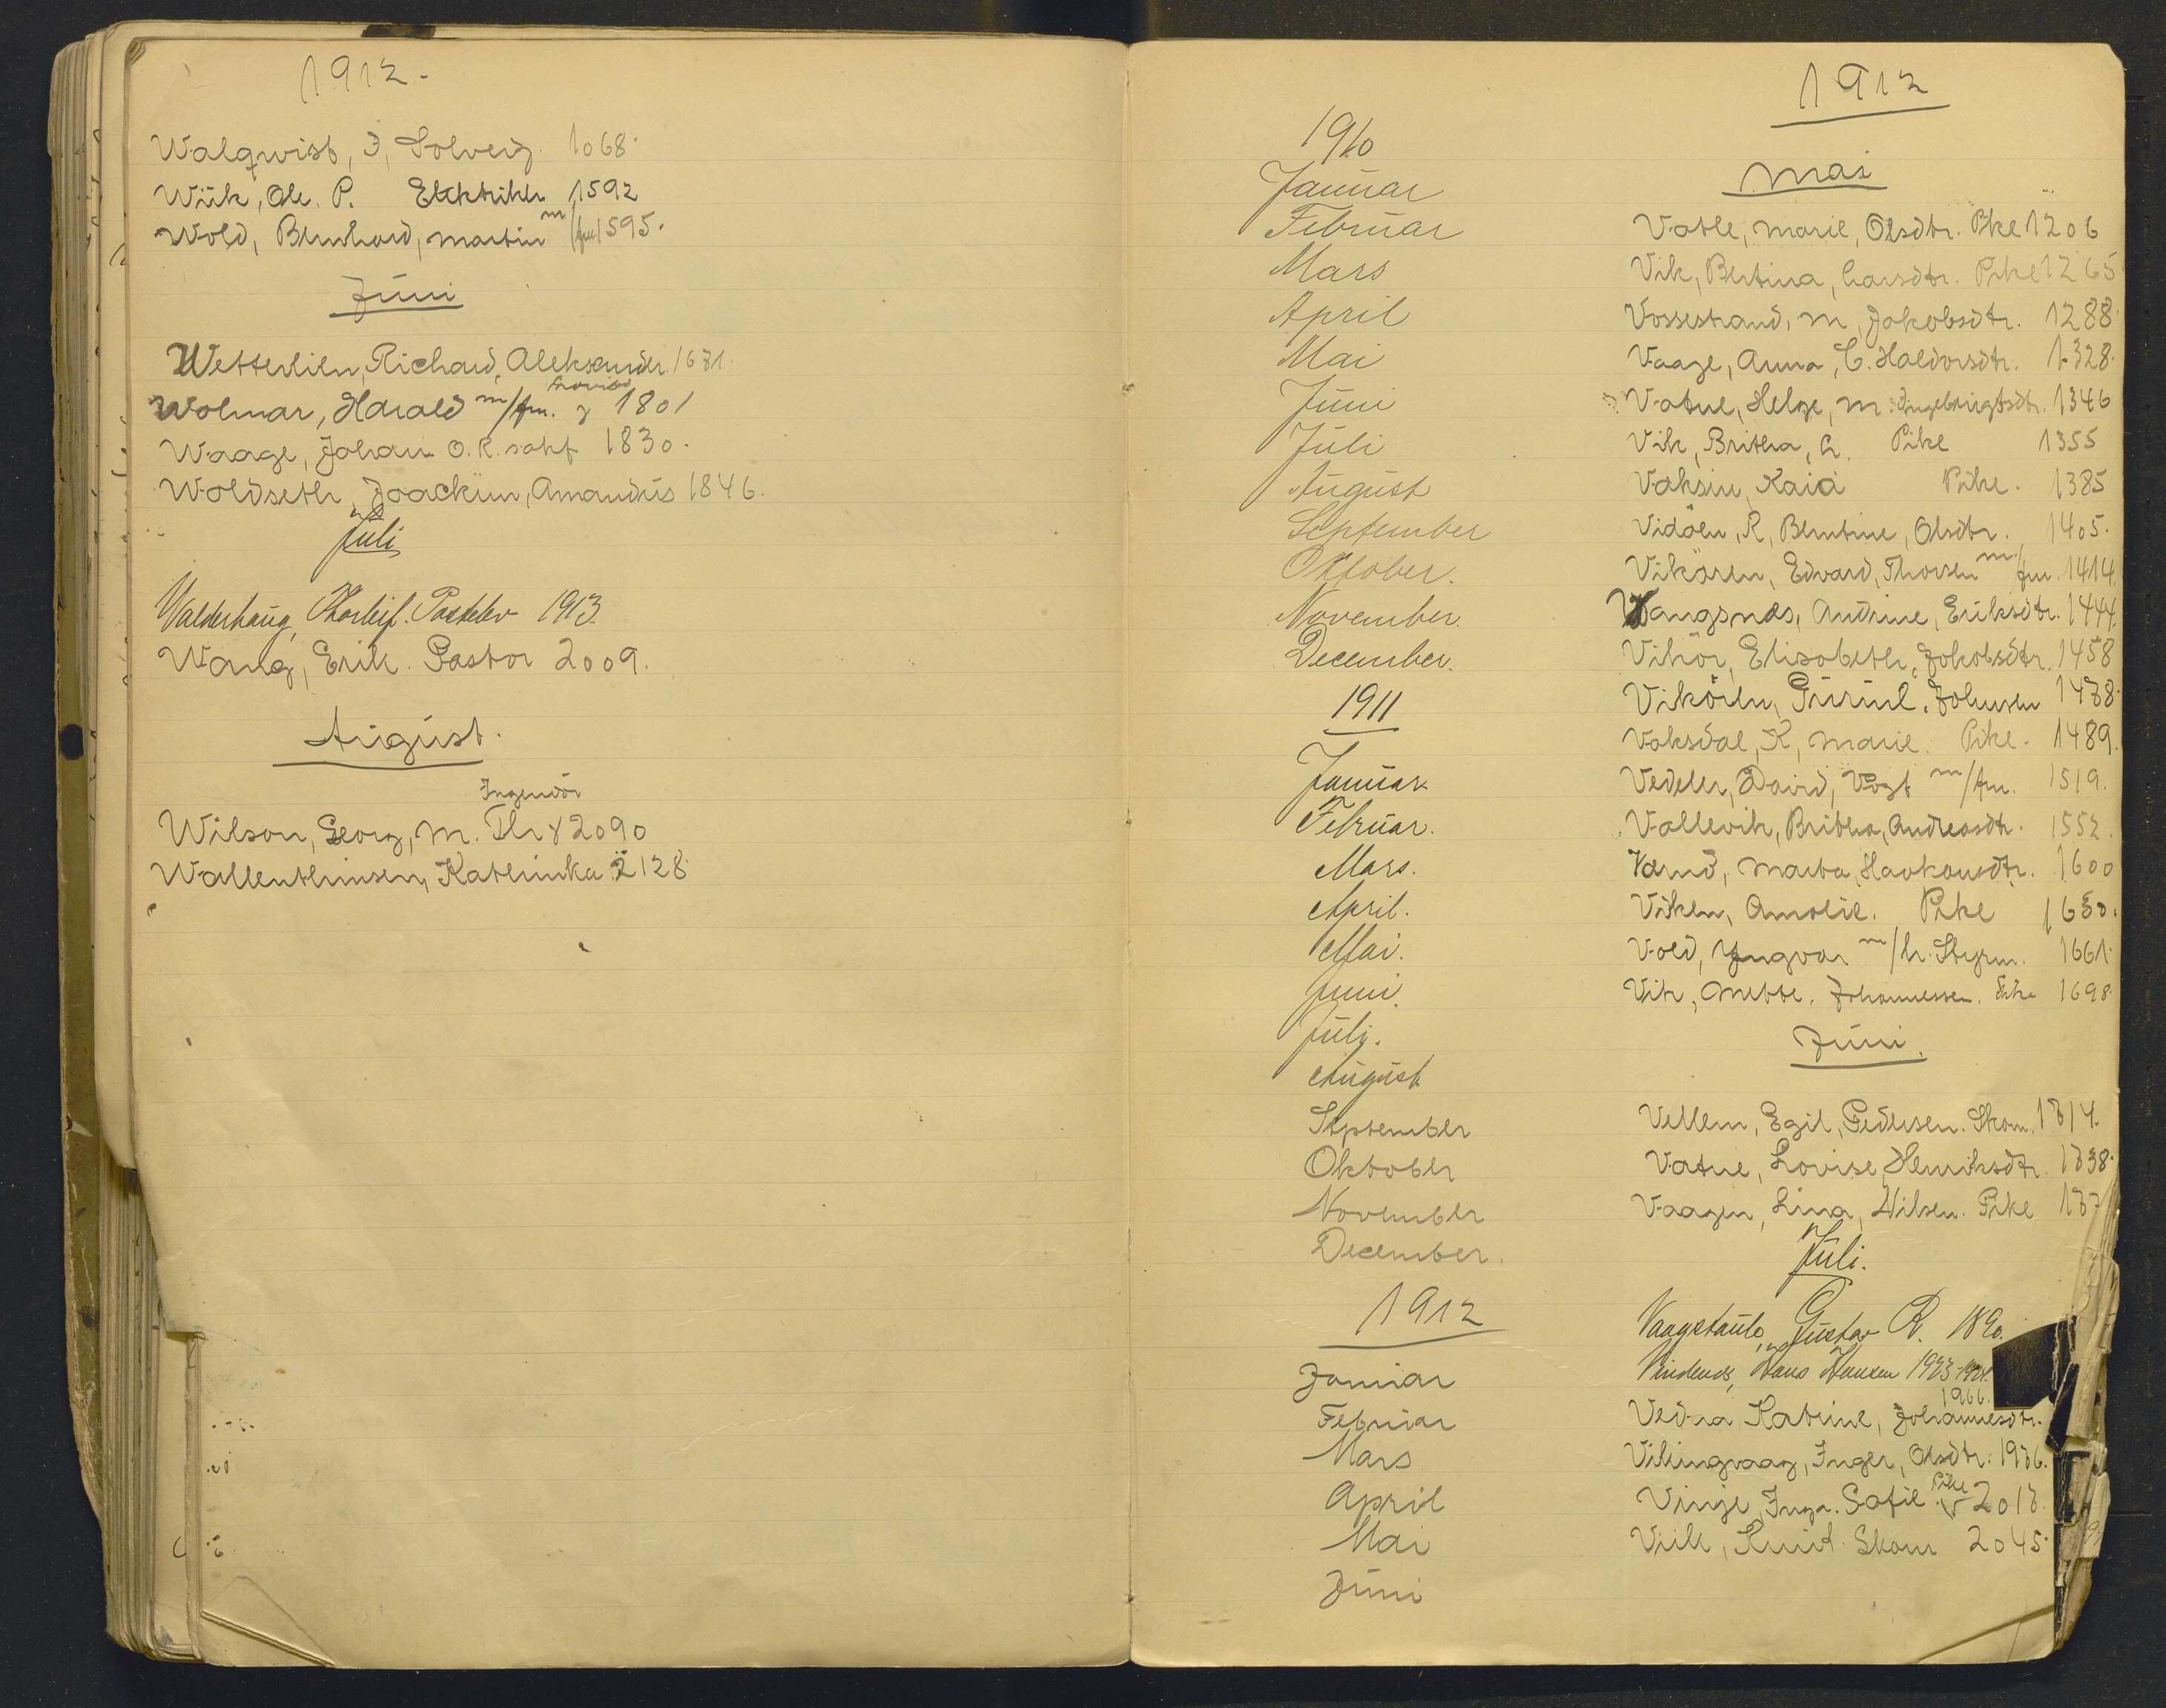 1912.
Walqvist, J, Solveig. 1068.
Wiik, Ole. P. Elektriker 1592
Wold, Bernhard, Martin m/fru 1595.
Juni
Wetterlien, Richard, Aleksander. 1671.
Wolmar, Harald m/fru. 1801
Waage, Johan O.R. sakf 1830.
Woldseth, Joackim, Amandus 1846.
Juli
Walderhaug, Thorleif. 1913.
Wang, Erik. Pastor 2009.
August.
Ingeniör
Wilson, Georg, M. 2090
Wallenthinsen, Kathinka 2128.
1910
Januar
Februar
Mars
April
Mai
Juni
Juli
August
September
Oktober.
November.
December.
1911
Januar
Februar.
Mars.
April.
Mai.
Juni.
Juli.
August
September
Oktober
November
December.
1912
Januar
Februar
Mars
April
Mai
Juni
1912
Mai
Vatle, Marie, Olsdtr. Pike 1206
Vik, Bertina, Larsdtr. Pike 1265
Vossestrand, M, Jakobsdtr. 1288.
Vaage, Anna, C. Haldorsdtr. 1328.
Vatne, Helge, M. Ingebrigtsdtr. 1346
Vik, Britha, A. Pike 1355
Vaksin, Kaia Pike. 1385
Vidöen, R, Berntine, Olsdtr. 1405.
Vikören, Edvard, Thorsen m/fru. 1414.
Vangsnes, Andrine, Eriksdtr. 1444.
Vikör, Elisabeth, Jakobsdtr. 1458
Vikören, Johnsen 1478.
Vaksdal, K, Marie. Pike. 1489.
Vedeler, David, Vogt m/fru. 1519.
Vallevik, Britha, Andreasdtr. 1552.
Marta, Haakonsdtr. 1600
Viken, Amalie. Pike 1650.
Vold, Yngvar m/h. Styrm. 1661.
Vik, Mette. Johannessen. Pike 1698.
Juni.
Vellem, Egil, Pedersen. Skom. 1714.
Vatne, Lovise, Henriksdtr. 1738.
Vaagen, Lina, Nilsen. Pike
Juli.
Gustav R. 1890.
Hans Hansen 1923-1924.
1966.
Vedaa, Katrine, Johannesdtr.
Vikingvaag, Inger, Olsdtr. 1976.
Vinje, Inga. Sofie Pike 2017.
Viik, Knut. Skom 2045.